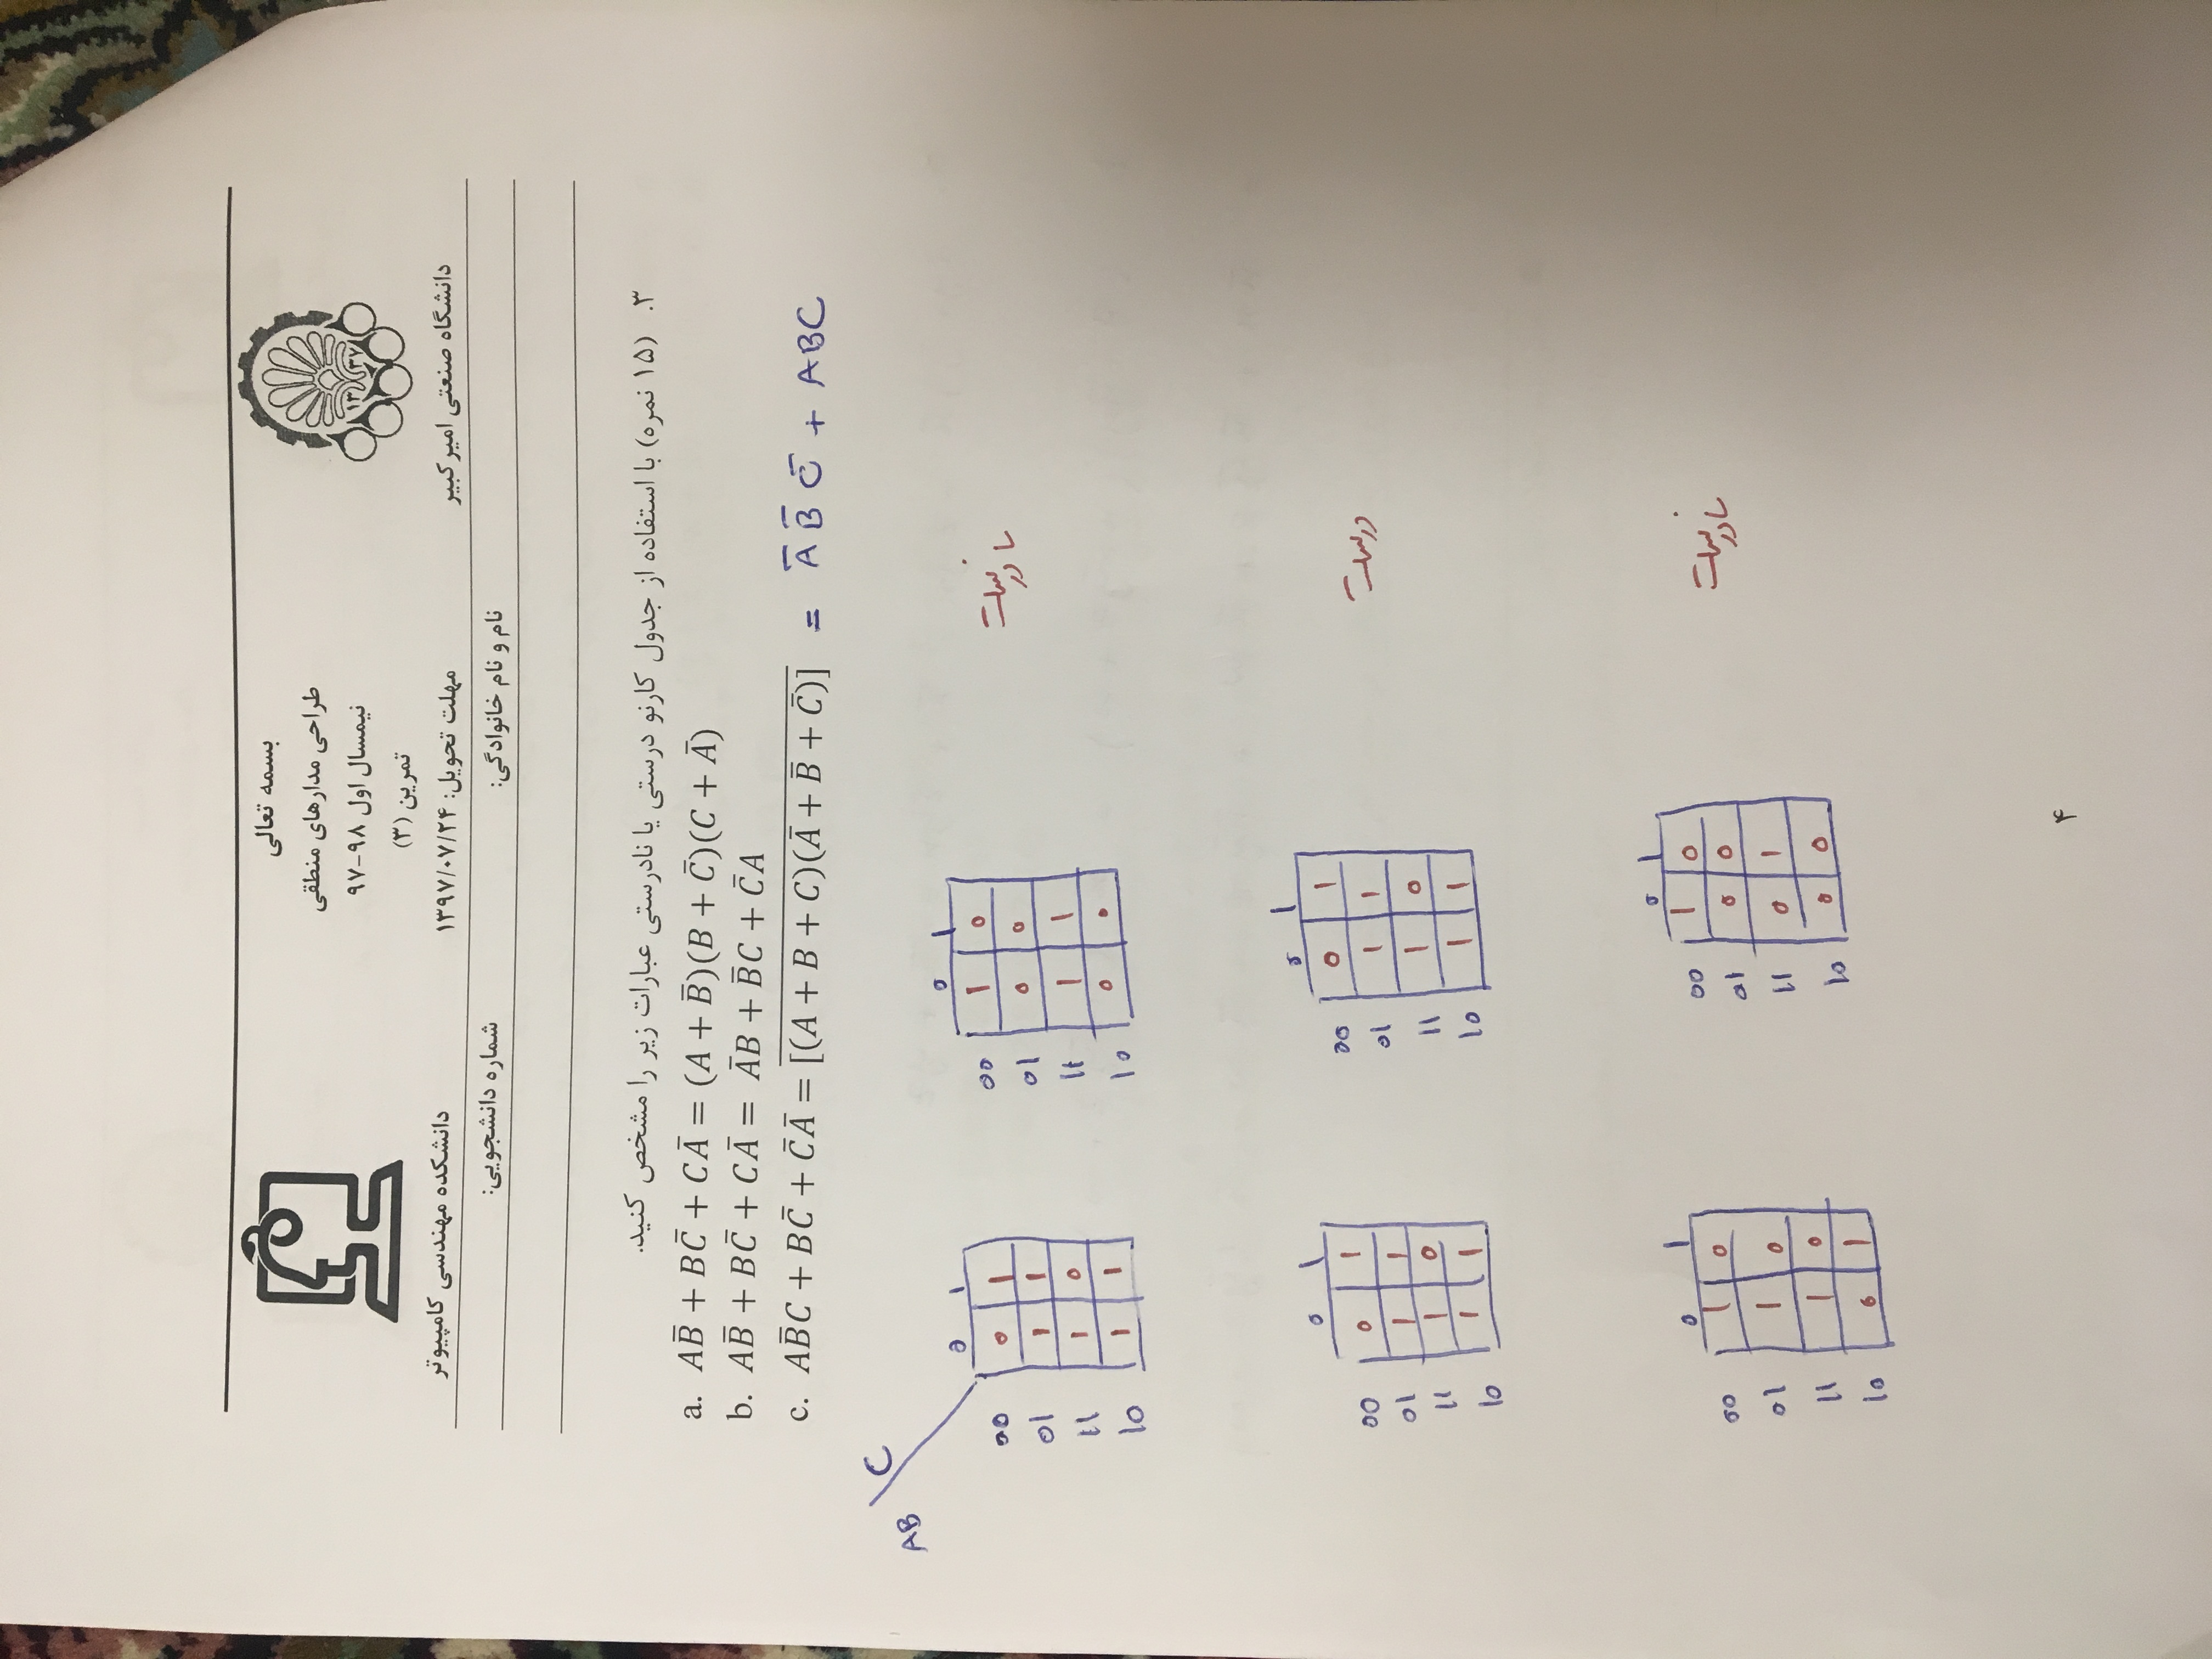 بسمه تعالی
طراحی مدارهای منطقی
نیمسال اول ۹۸-۹۷
تمرین (۳)
۱۳ ۳۷
دانشگاه صنعتی امیرکبیر
مهلت تحویل: ۱۳۹۷/۰۷/۲۴
دانشکده مهندسی کامپیوتر
نام و نام خانوادگی: شماره دانشجویی:
۳. (۱۵ نمره) با استفاده از جدول کارنو درستی یا نادرستی عبارات زیر را مشخص کنید.
a. AB̄ + BC̄ + CĀ = (A + B̄)(B + C̄)(C + Ā)
b. AB̄ + BC̄ + CĀ = ĀB + B̄C + C̄A
c. AB̄C + BC̄ + C̄Ā = \overline{[(A + B + C)(Ā + B̄ + C̄)]} = Ā B̄ C̄ + ABC
C
AB
0 1 0 1
00 0 1 00 1 0 نادرست
01 1 1 01 0 0
11 1 0 11 1 1
10 1 1 10 0 0
0 1 0 1
00 0 1 00 0 1 درست
01 1 1 01 1 1
11 1 0 11 1 0
10 1 1 10 1 1
0 1 0 1
00 1 0 00 1 0 نادرست
01 1 0 01 0 0
11 1 0 11 0 1
10 0 1 10 0 0
۴